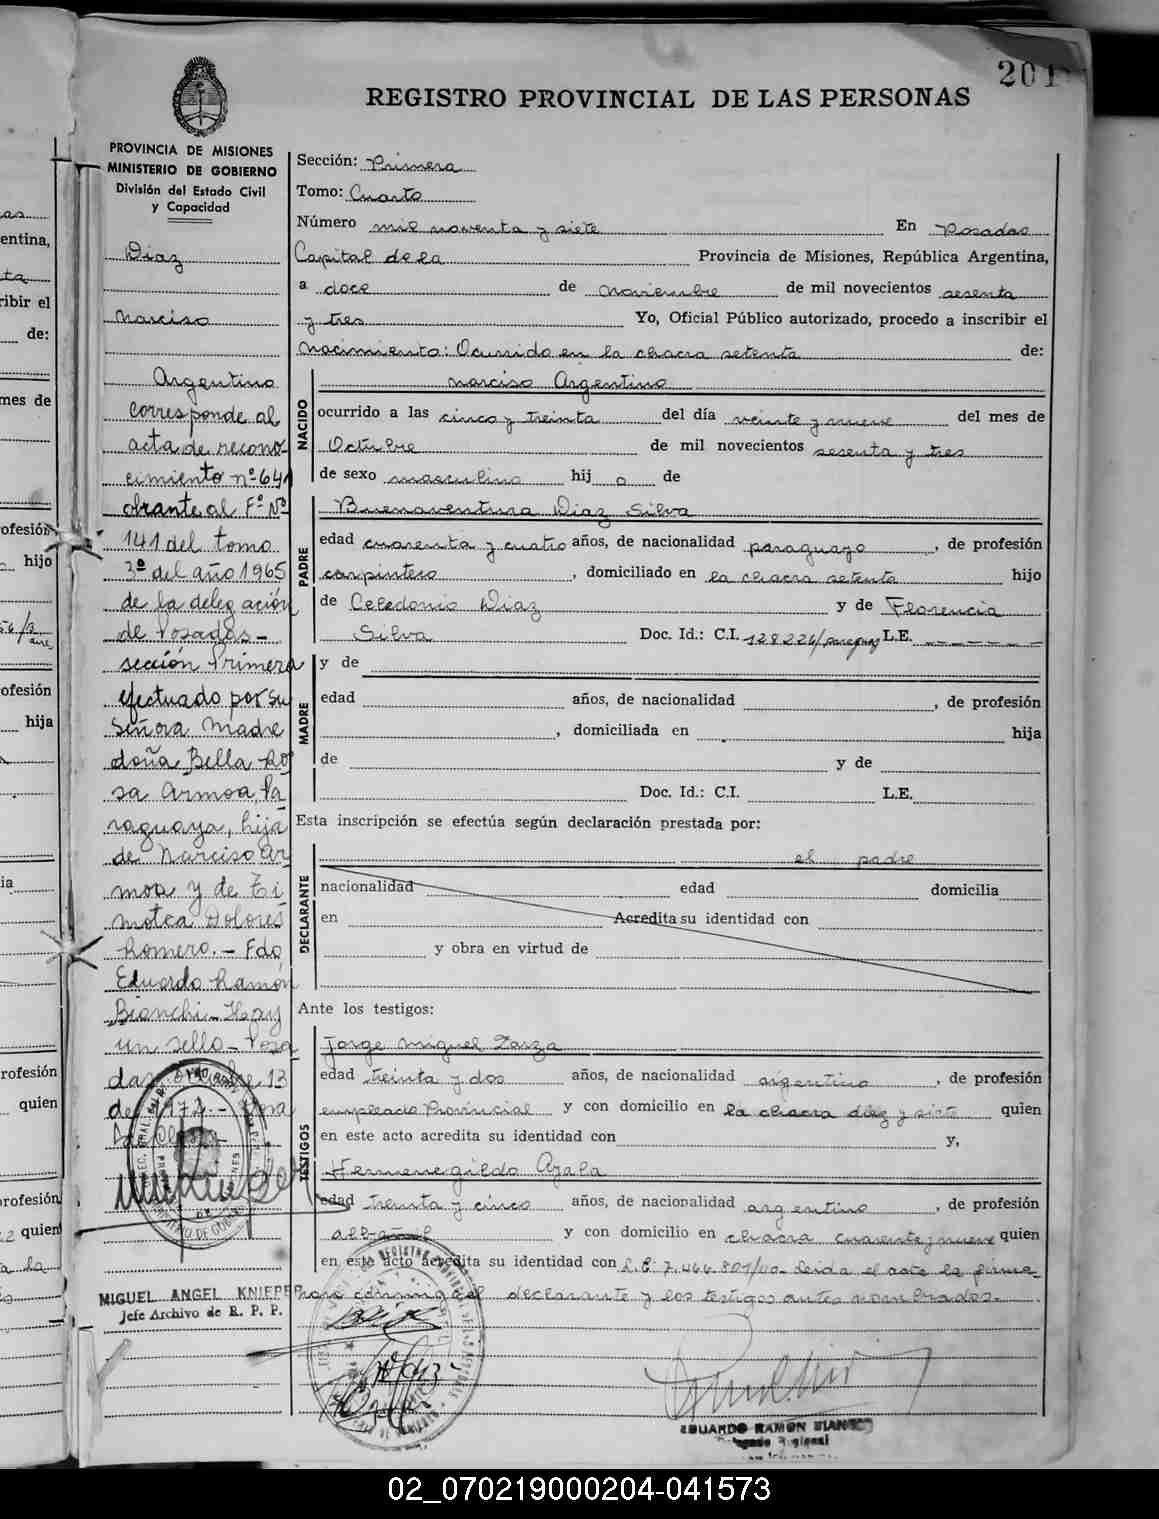 201
REGISTRO PROVINCIAL DE LAS PERSONAS
PROVINCIA DE MISIONES
MINISTERIO DE GOBIERNO
División del Estado Civil
y Capacidad
Diaz
Narciso
Argentino
corresponde al
acta de recono-
cimiento nº 641
obrante al Fº Nº
141 del tomo
3º del año 1965
de la delegación
de Posadas -
sección Primera
efectuado por su
señora Madre
doña Bella Ro
sa Armoa, Pa
raguaya, hija
de Narciso Ar
moa y de Ti
motea Dolores
Romero. - Fdo
Eduardo Ramón
Bianchi - Hay
un sello - Posa
das, 13
de 1972 -
MIGUEL ANGEL KNIEPE
Jefe Archivo de R. P. P.
Sección: Primera
Tomo: Cuarto
Número mil noventa y siete En Posadas
Capital de la Provincia de Misiones, República Argentina,
a doce de noviembre de mil novecientos sesenta
y tres Yo, Oficial Público autorizado, procedo a inscribir el
Nacimiento: Ocurrido en la chacra setenta de:
NACIDO
Narciso Argentino
ocurrido a las cinco y treinta del día veinte y nueve del mes de
Octubre de mil novecientos sesenta y tres
de sexo masculino hij o de
PADRE
Buenaventura Diaz Silva
edad cuarenta y cuatro años, de nacionalidad paraguayo, de profesión
carpintero, domiciliado en la chacra setenta hijo
de Celedonio Diaz y de Florencia
Silva Doc. Id.: C.I. 128226/paraguay L.E. - - - - - -
MADRE
y de
edad años, de nacionalidad , de profesión
, domiciliada en hija
de y de
Doc. Id.: C.I. L.E.
Esta inscripción se efectúa según declaración prestada por:
DECLARANTE
el padre
nacionalidad edad domicilia
en Acredita su identidad con
y obra en virtud de
Ante los testigos:
TESTIGOS
Jorge Miguel Zarza
edad treinta y dos años, de nacionalidad argentino, de profesión
empleado Provincial y con domicilio en la chacra diez y siete quien
en este acto acredita su identidad con y,
Hermenegildo Ayala
edad treinta y cinco años, de nacionalidad argentino, de profesión
albañil y con domicilio en chacra cuarenta y nueve quien
en este acto acredita su identidad con L.E. 7.466.801/40- Leida el acta la firma-
declarante y los testigos antes nombrados.
EDUARDO RAMON BIANCHI
Delegado Regional
02_070219000204-041573